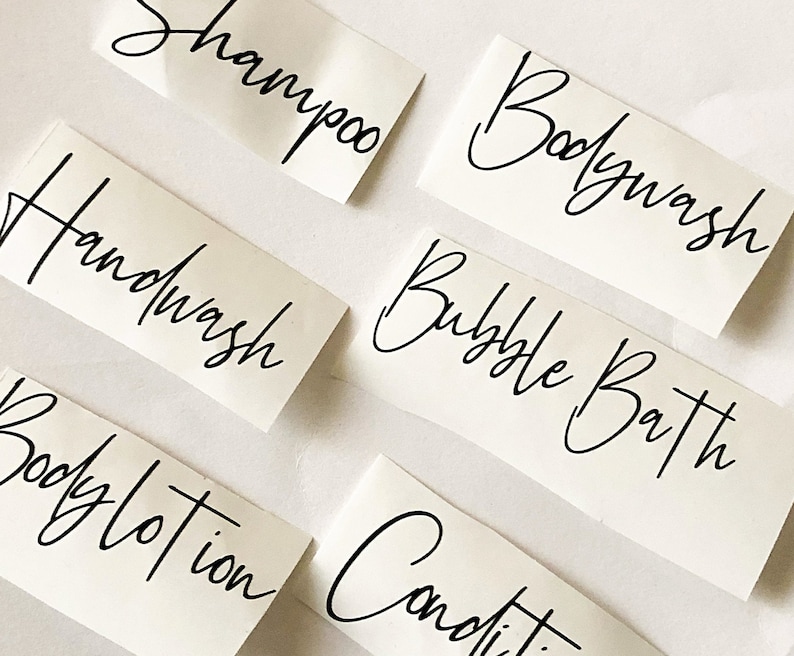 Shampoo
Bodywash
Handwash
Bubble Bath
Body lotion
Conditi